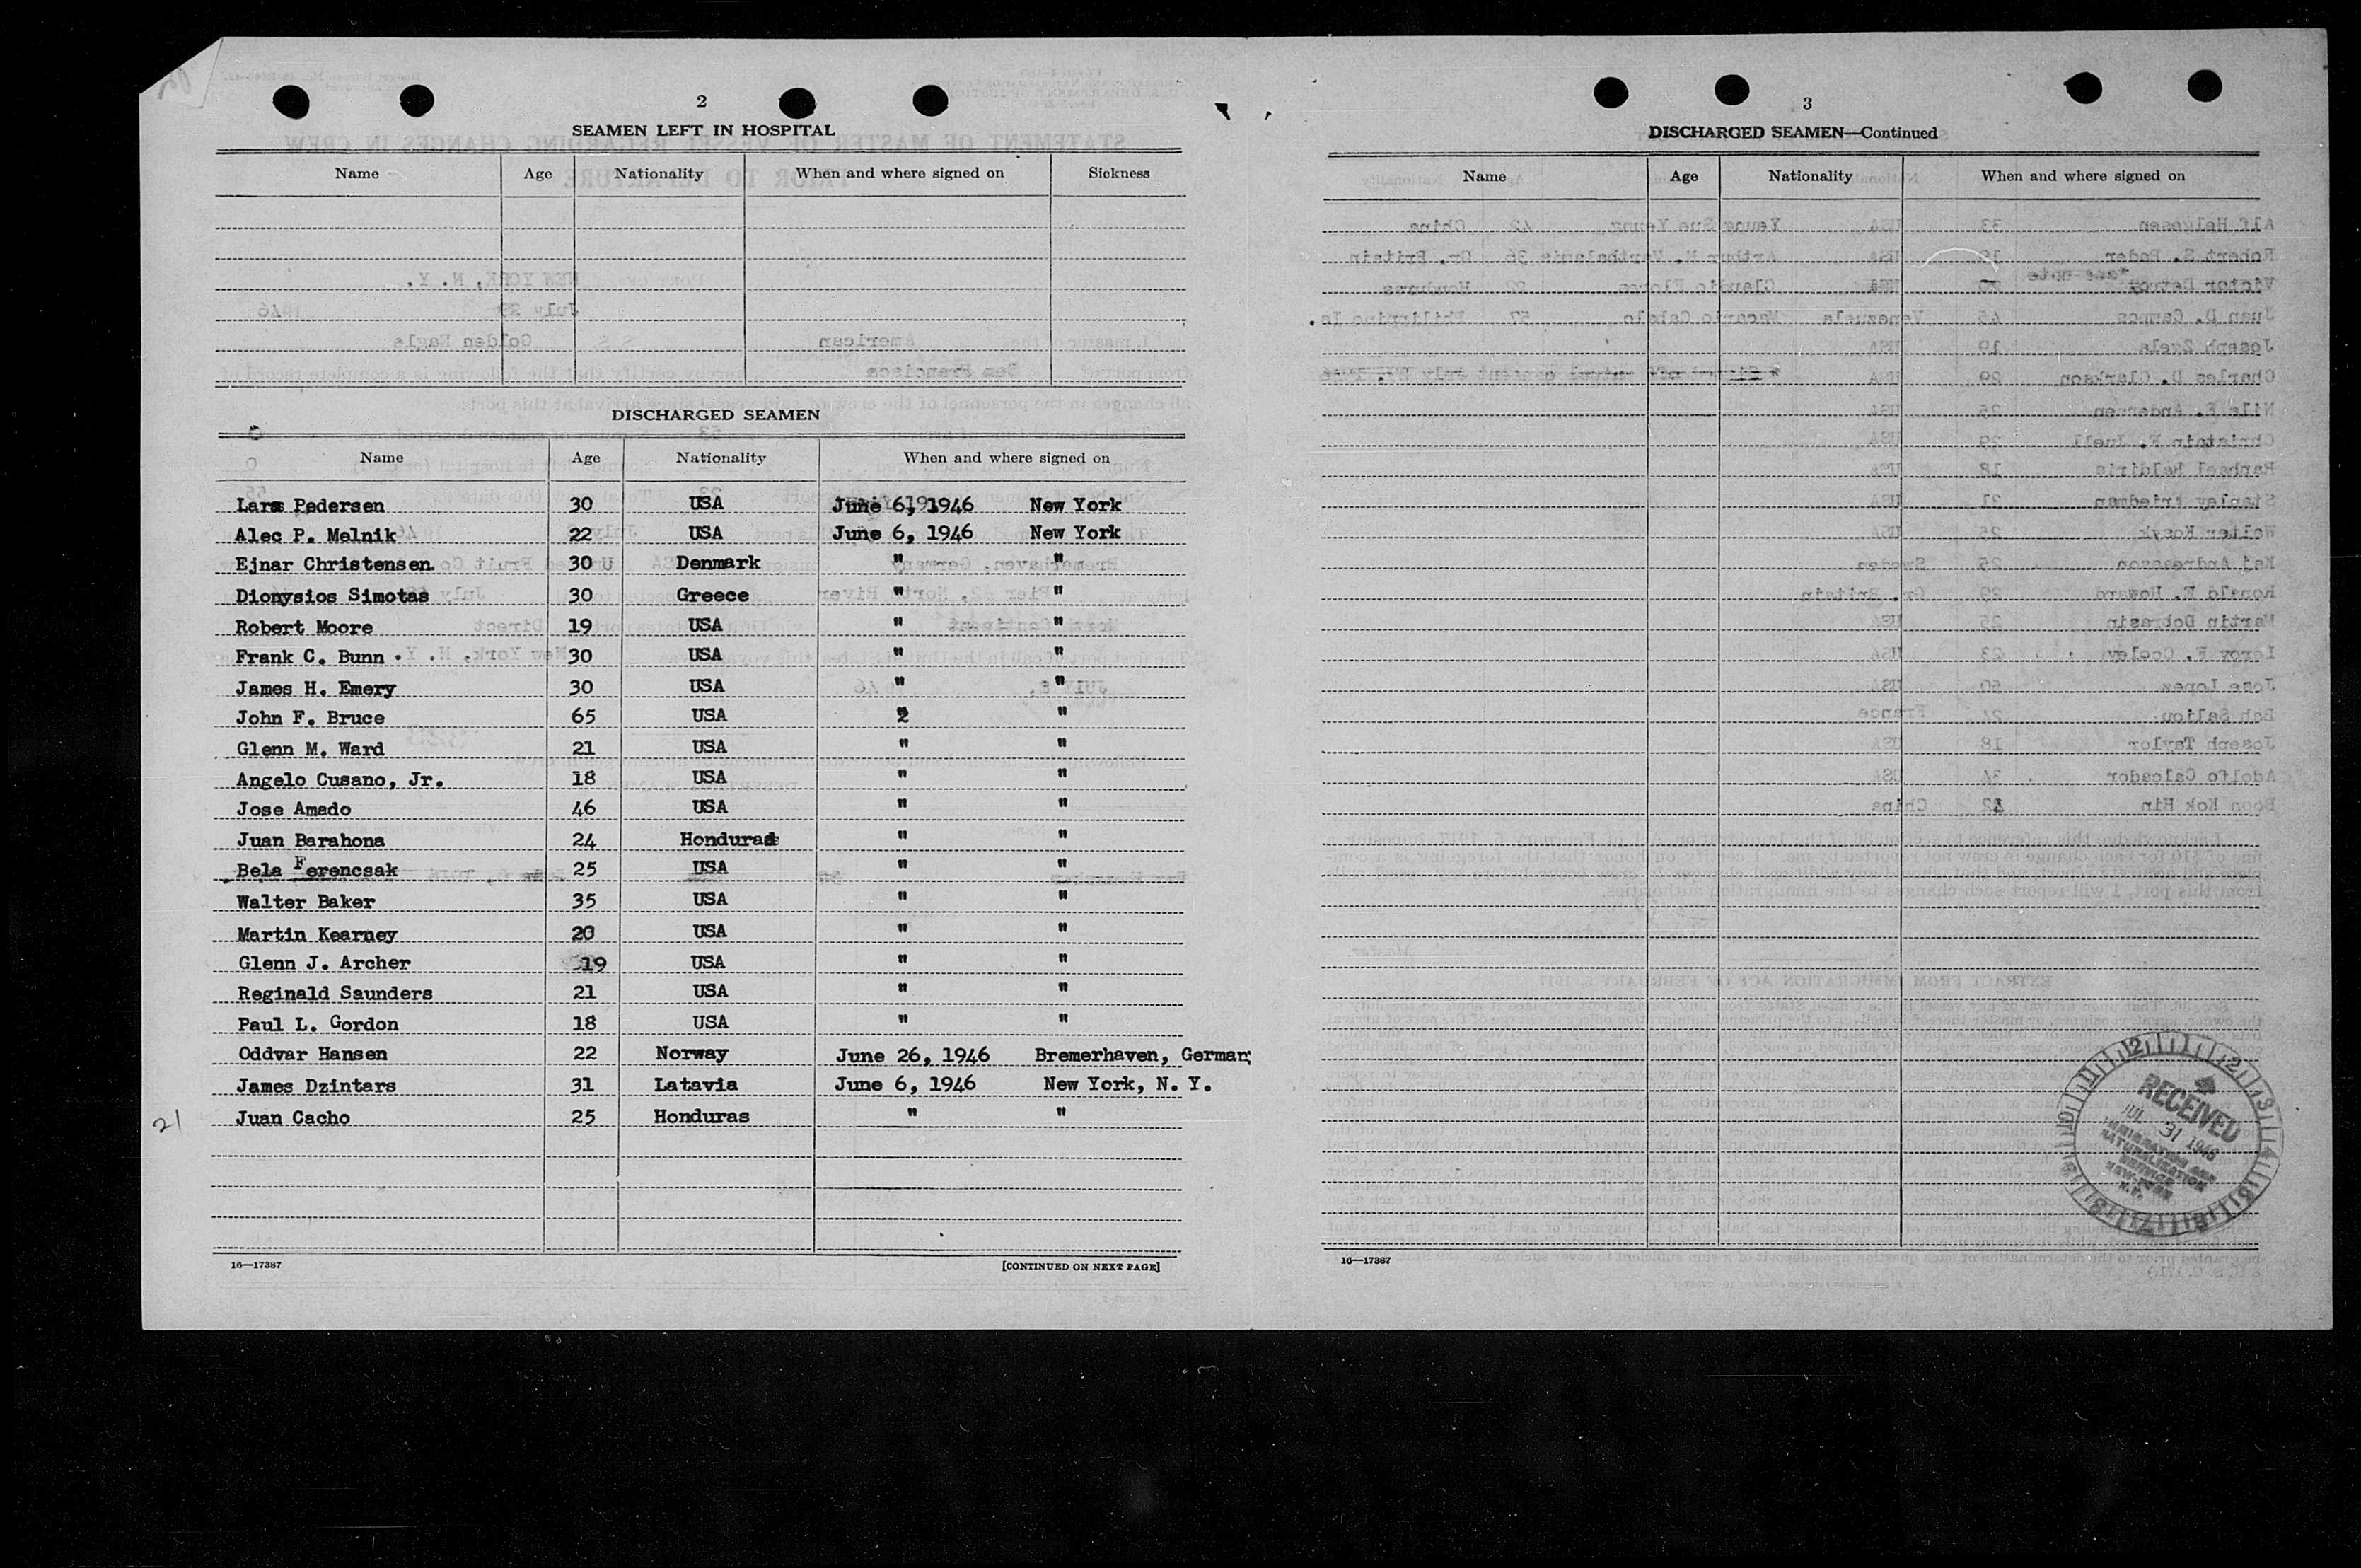 2
SEAMEN LEFT IN HOSPITAL
Name Age Nationality When and where signed on Sickness
DISCHARGED SEAMEN
Name Age Nationality When and where signed on
Lars Pedersen 30 USA June 6, 1946 New York
Alec P. Melnik 22 USA June 6, 1946 New York
Ejnar Christensen 30 Denmark " "
Dionysios Simotas 30 Greece " "
Robert Moore 19 USA " "
Frank C. Bunn 30 USA " "
James H. Emery 30 USA " "
John F. Bruce 65 USA " "
Glenn M. Ward 21 USA " "
Angelo Cusano, Jr. 18 USA " "
Jose Amado 46 USA " "
Juan Barahona 24 Honduras " "
Bela Ferencsak 25 USA " "
Walter Baker 35 USA " "
Martin Kearney 20 USA " "
Glenn J. Archer 19 USA " "
Reginald Saunders 21 USA " "
Paul L. Gordon 18 USA " "
Oddvar Hansen 22 Norway June 26, 1946 Bremerhaven, German
James Dzintars 31 Latavia June 6, 1946 New York, N. Y.
21 Juan Cacho 25 Honduras " "
16—17387 [CONTINUED ON NEXT PAGE]
3
DISCHARGED SEAMEN—Continued
Name Age Nationality When and where signed on
RECEIVED
JUL 31 1946
IMMIGRATION AND
NATURALIZATION
SERVICE
NEW YORK
N.Y.
16—17387